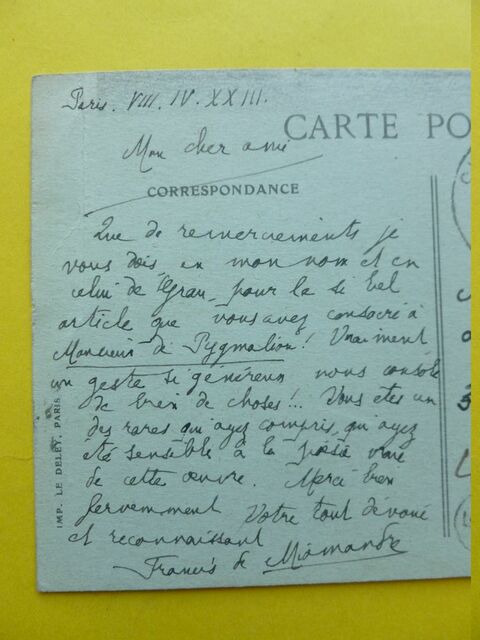 Paris. VIII. IV. XXIII.
CARTE PO
Mon cher ami
CORRESPONDANCE
Que de remerciements je
vous dois, en mon nom et en
celui de Grau, pour le si bel
article que vous avez consacré à
Monsieur de Pygmalion! Vraiment
un geste si généreux nous console
de bien de choses!.. Vous êtes un
des rares qui ayez compris, qui ayez
été sensible à la poésie vraie
de cette œuvre. Merci bien
fervemment Votre tout dévoué
et reconnaissant
Francis de Miomandre
IMP. LE DELEY, PARIS